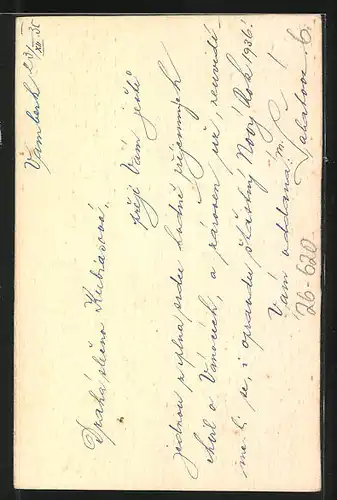 Vamberk 23/XII 35
Drahá slečno Kubiasová,
přeji Vám ještě
jednou z plna srdce hodně příjemných
chvil o Vánocích, a zároveň už, neuvidí-
me-li se, i opravdu šťastný Nový Rok 1936!
Vám oddaná
26-620